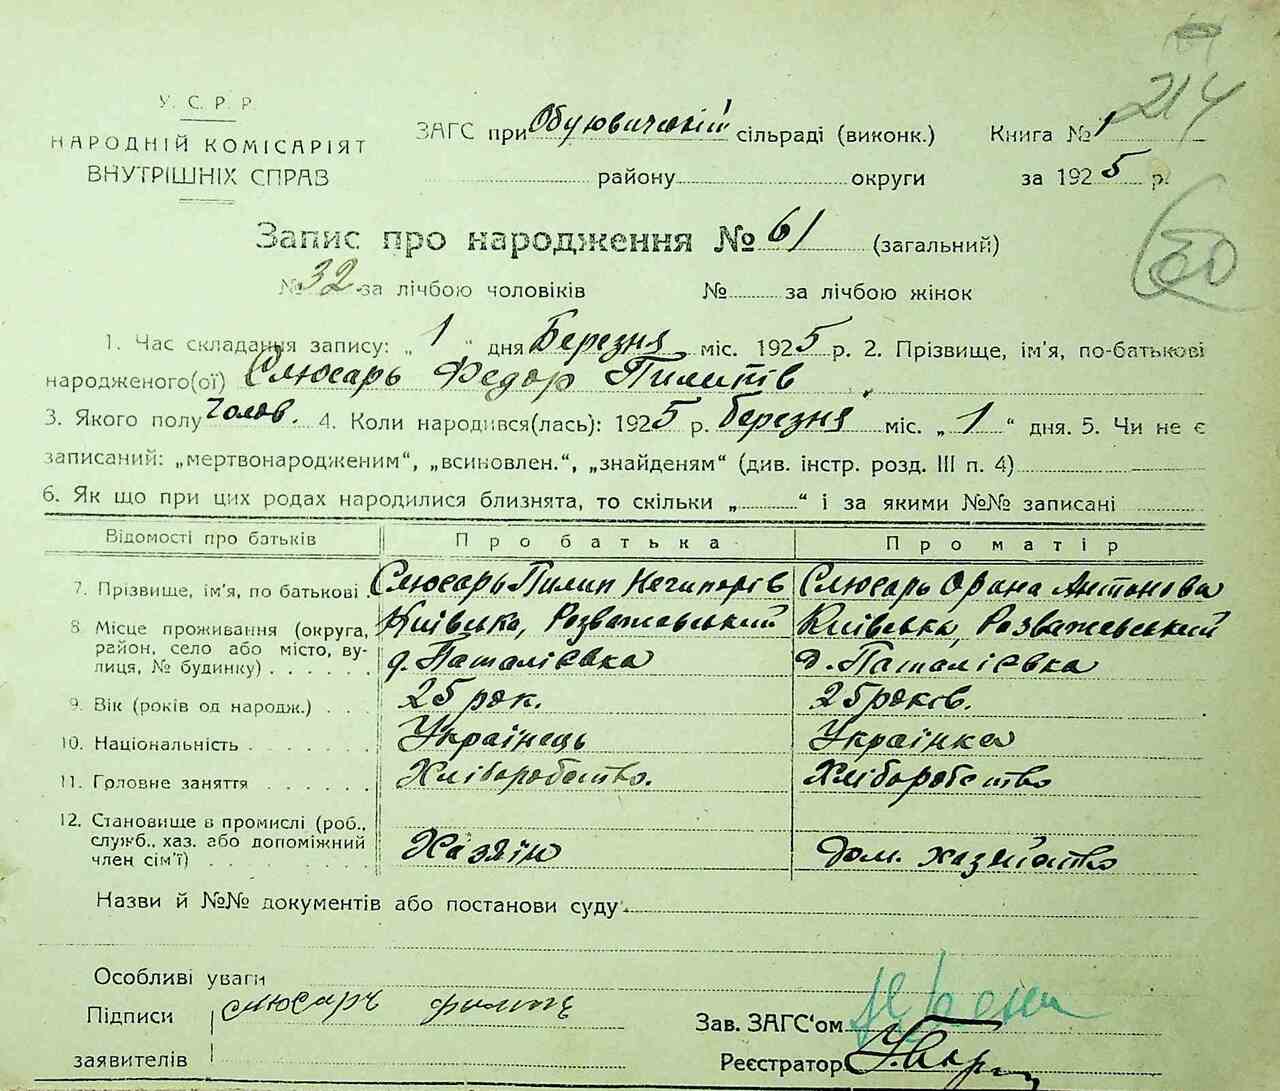 214
У. С. Р. Р.
НАРОДНІЙ КОМІСАРІЯТ
ВНУТРІШНІХ СПРАВ
ЗАГС при Обуховичський сільраді (виконк.) Книга № 1
району округи за 1925 р.
Запис про народження № 61 (загальний)
60
№ 32 за лічбою чоловіків № за лічбою жінок
1. Час складання запису: „ 1 " дня Березня міс. 1925 р. 2. Прізвище, ім'я, по-батькові
народженого(ої) Слюсарь Федор Пилипів
3. Якого полу Чолов. 4. Коли народився(лась): 1925 р. березня міс. „ 1 " дня. 5. Чи не є
записаний: „мертвонародженим", „всиновлен.", „знайденям" (див. інстр. розд. III п. 4)
6. Як що при цих родах народилися близнята, то скільки „ " і за якими №№ записані
Відомості про батьків Про батька Про матір
7. Прізвище, ім'я, по батькові Слюсарь Пилип Нечипорів Слюсарь Орина Антонова
8 Місце проживання (округа, Київська, Розважевський Київська, Розважевський
район, село або місто, ву- д. Наталієвка д. Наталієвка
лиця, № будинку)
9. Вік (років од народж.) 25 рок. 25 років.
10. Національність Украінець Украінка
11. Головне заняття Хліборобство. Хліборобство
12. Становище в промислі (роб.,
служб., хаз. або допоміжний Хазяін Дом. хазяйство
член сім'ї)
Назви й №№ документів або постанови суду
Особливі уваги
Підписи Слюсарь Филипп
Зав. ЗАГС'ом
заявителів Реєстратор